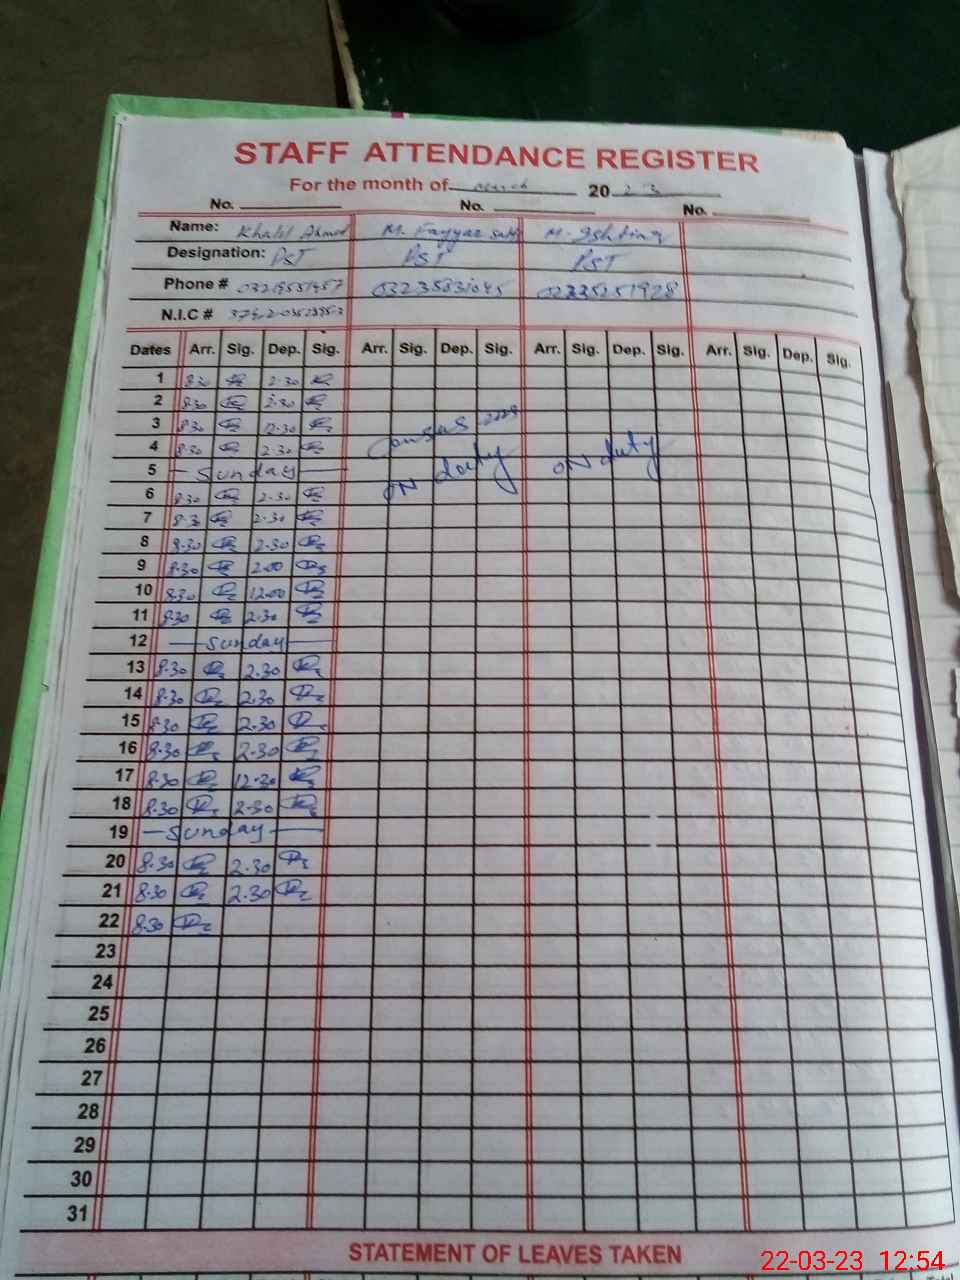 STAFF ATTENDANCE REGISTER
For the month of March 2023
No. No. No.
Name: Khalil Ahmed M. Fayyaz Satti M. Ishtiaq
Designation: PST PST PST
Phone # 03235831045 02335251928
N.I.C #
Dates Arr. Sig. Dep. Sig. Arr. Sig. Dep. Sig. Arr. Sig. Dep. Sig. Arr. Sig. Dep. Sig.
1 8:30 2:30
2 8:30 2:30
3 8:30 12:30 Census
4 8:30 2:30
5 Sunday ON duty ON duty
6 8:30 2:30
7 8:30 2:30
8 8:30 2:30
9 8:30 2:00
10 8:30 12:00
11 8:30 2:30
12 Sunday
13 8.30 2.30
14 8.30 2.30
15 8.30 2.30
16 8.30 2.30
17 8.30 12.30
18 8.30 2.30
19 Sunday
20 8.30 2.30
21 8.30 2.30
22 8.30
23
24
25
26
27
28
29
30
31
STATEMENT OF LEAVES TAKEN
22-03-23 12:54